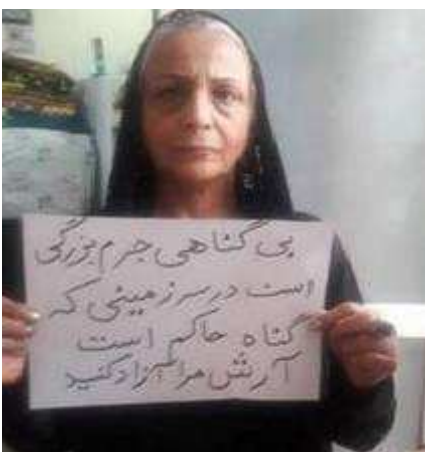 بی گناهی جرم بزرگی
است در سرزمینی که
گناه حاکم است
آرش مرا آزاد کنید